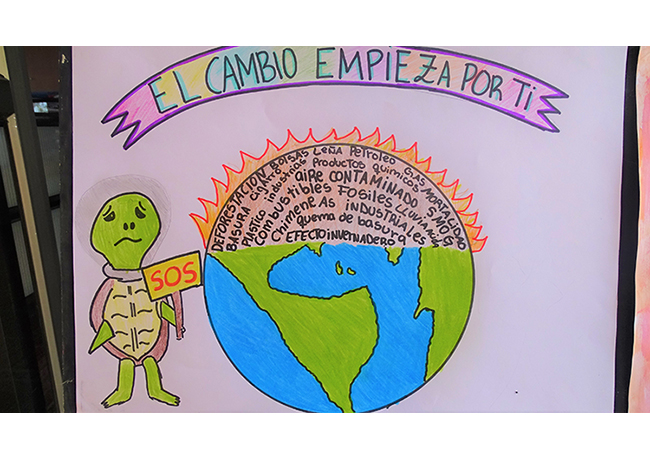 EL CAMBIO EMPIEZA POR TI
DEFORESTACIÓN BOLSAS LEÑA Petroleo GAS MORTALIDAD
BASURA industrias Productos químicos SMOG
Plastico aire CONTAMINADO
Combustibles FOSILES LLUVIA
Chimeneas INDUSTRIALES
quema de basura
EFECTO INVERNADERO
SOS